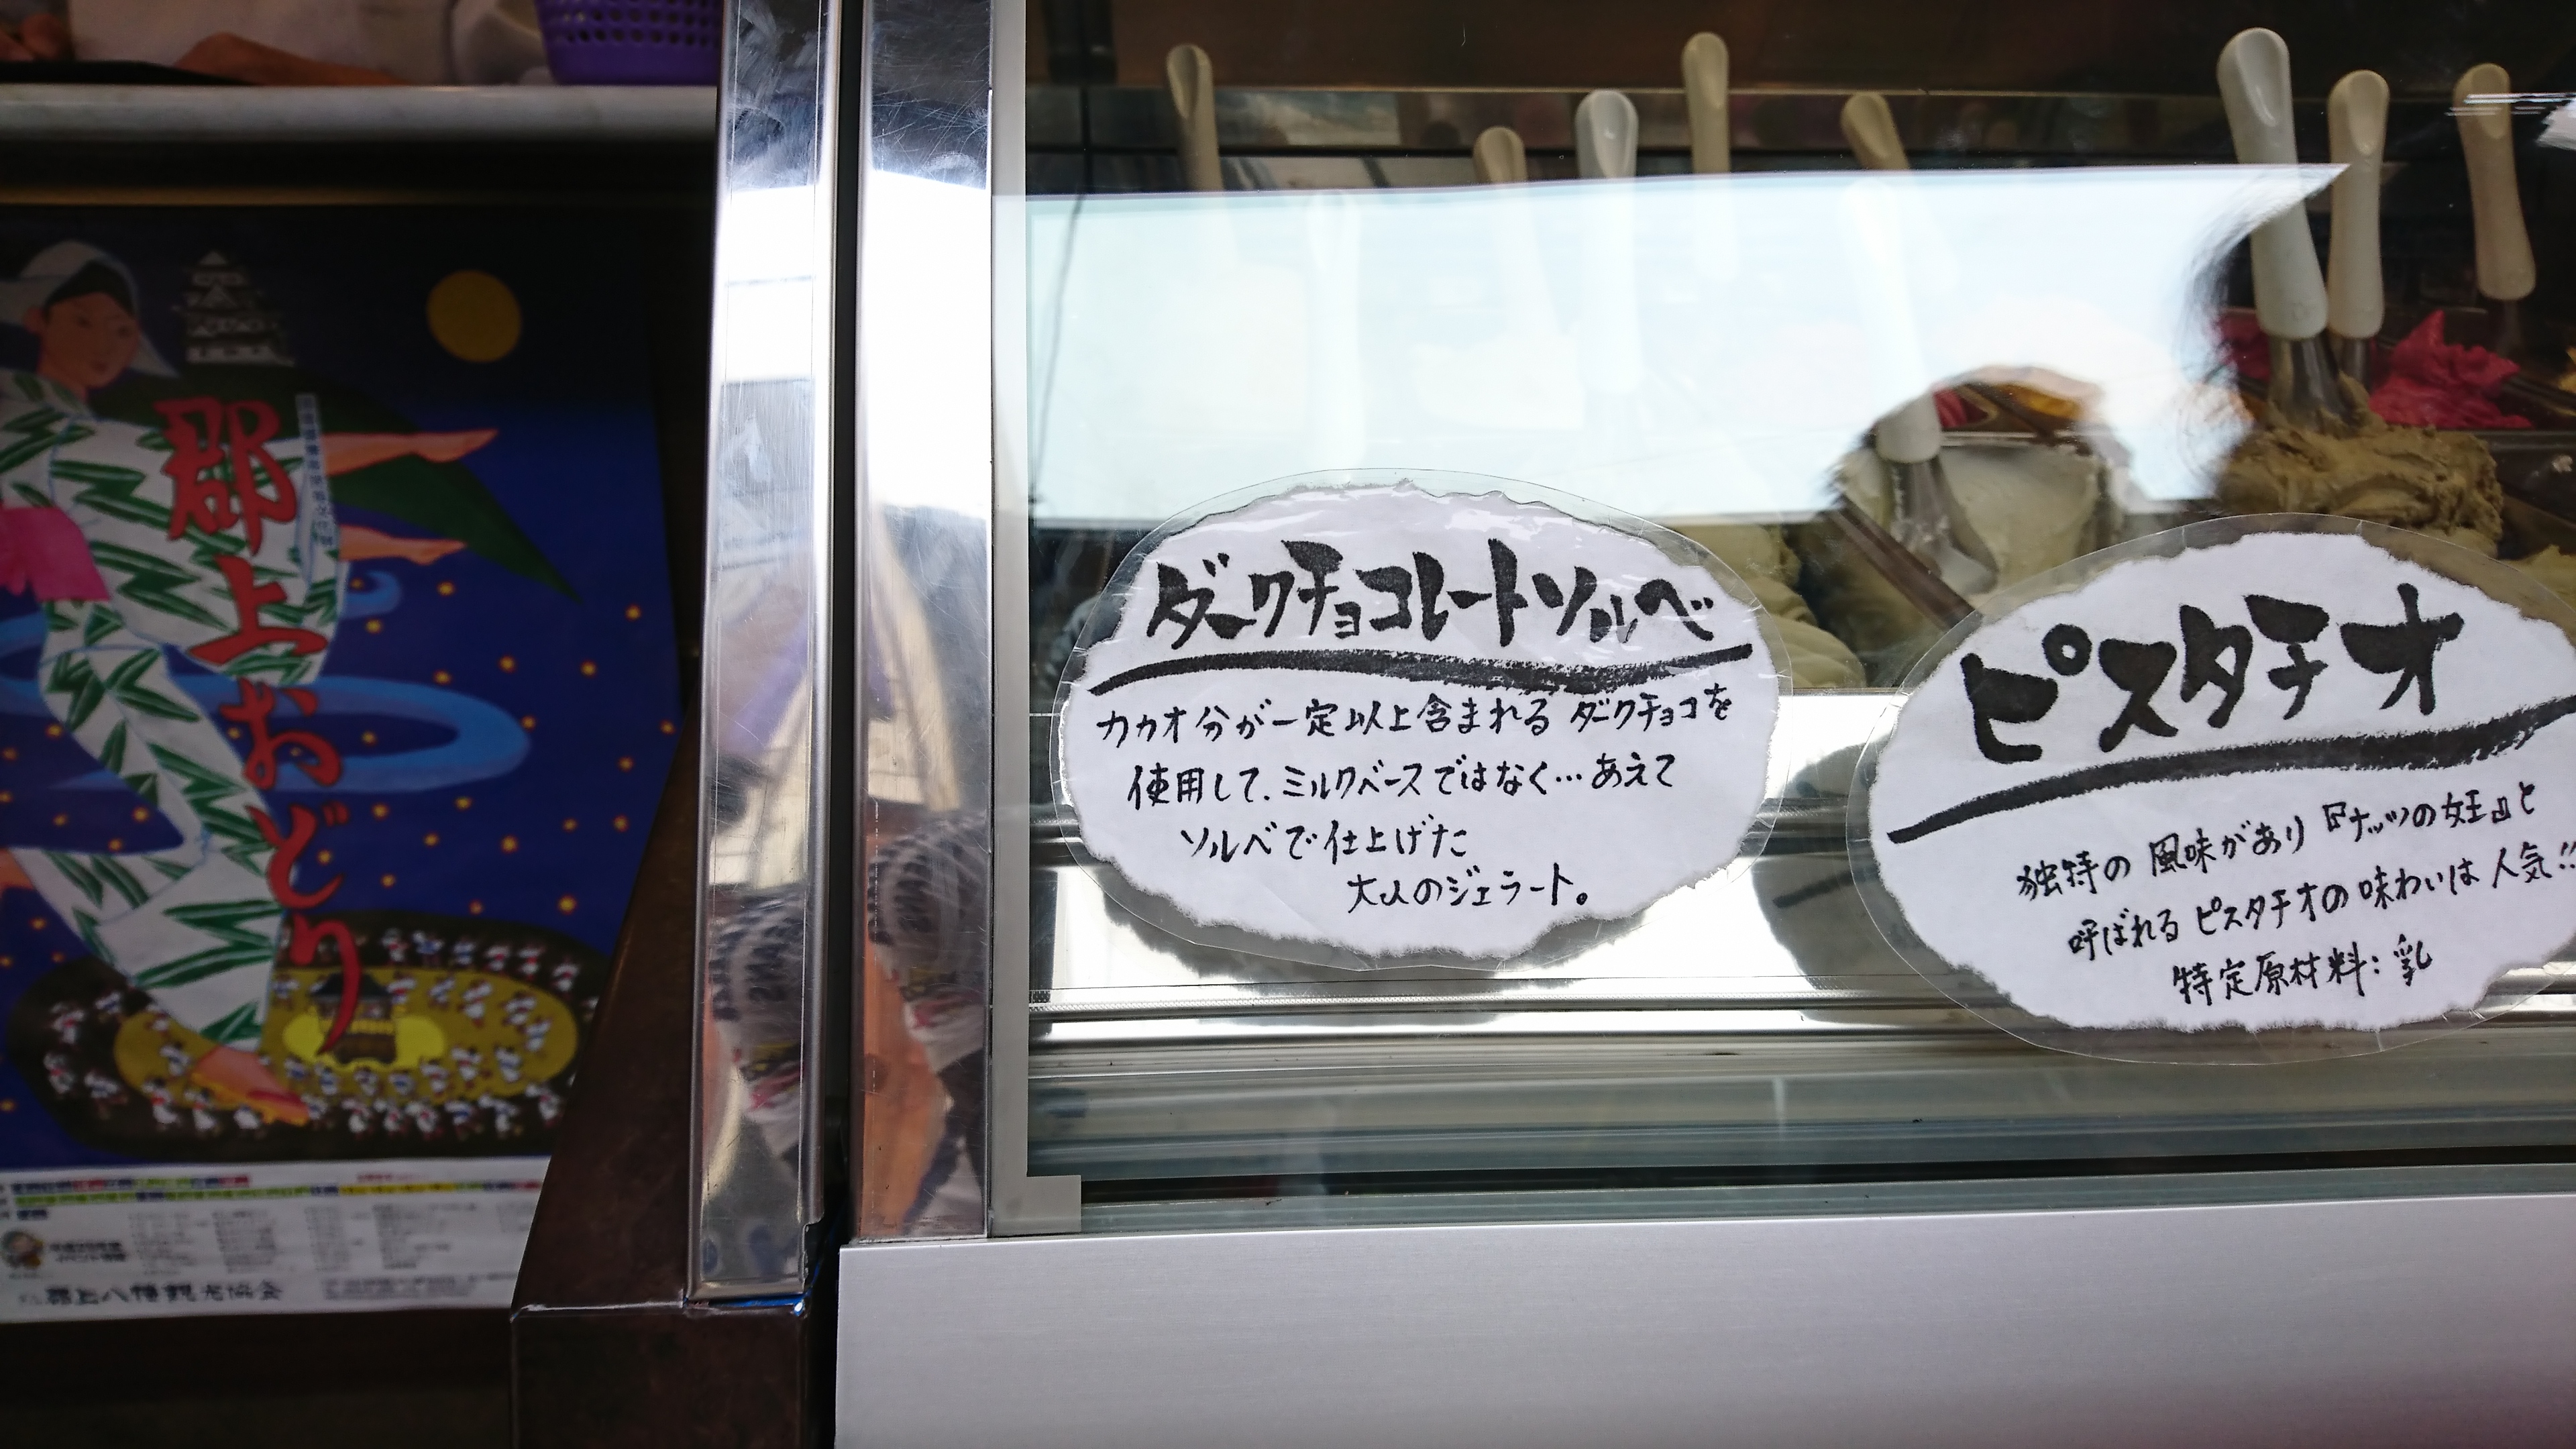 郡上おどり
郡上八幡観光協会
ダークチョコレートソルベ
カカオ分が一定以上含まれる ダークチョコを
使用して、ミルクベースではなく…あえて
ソルベで仕上げた
大人のジェラート。
ピスタチオ
独特の 風味があり『ナッツの女王』と
呼ばれる ピスタチオの味わいは 人気!!
特定原材料:乳